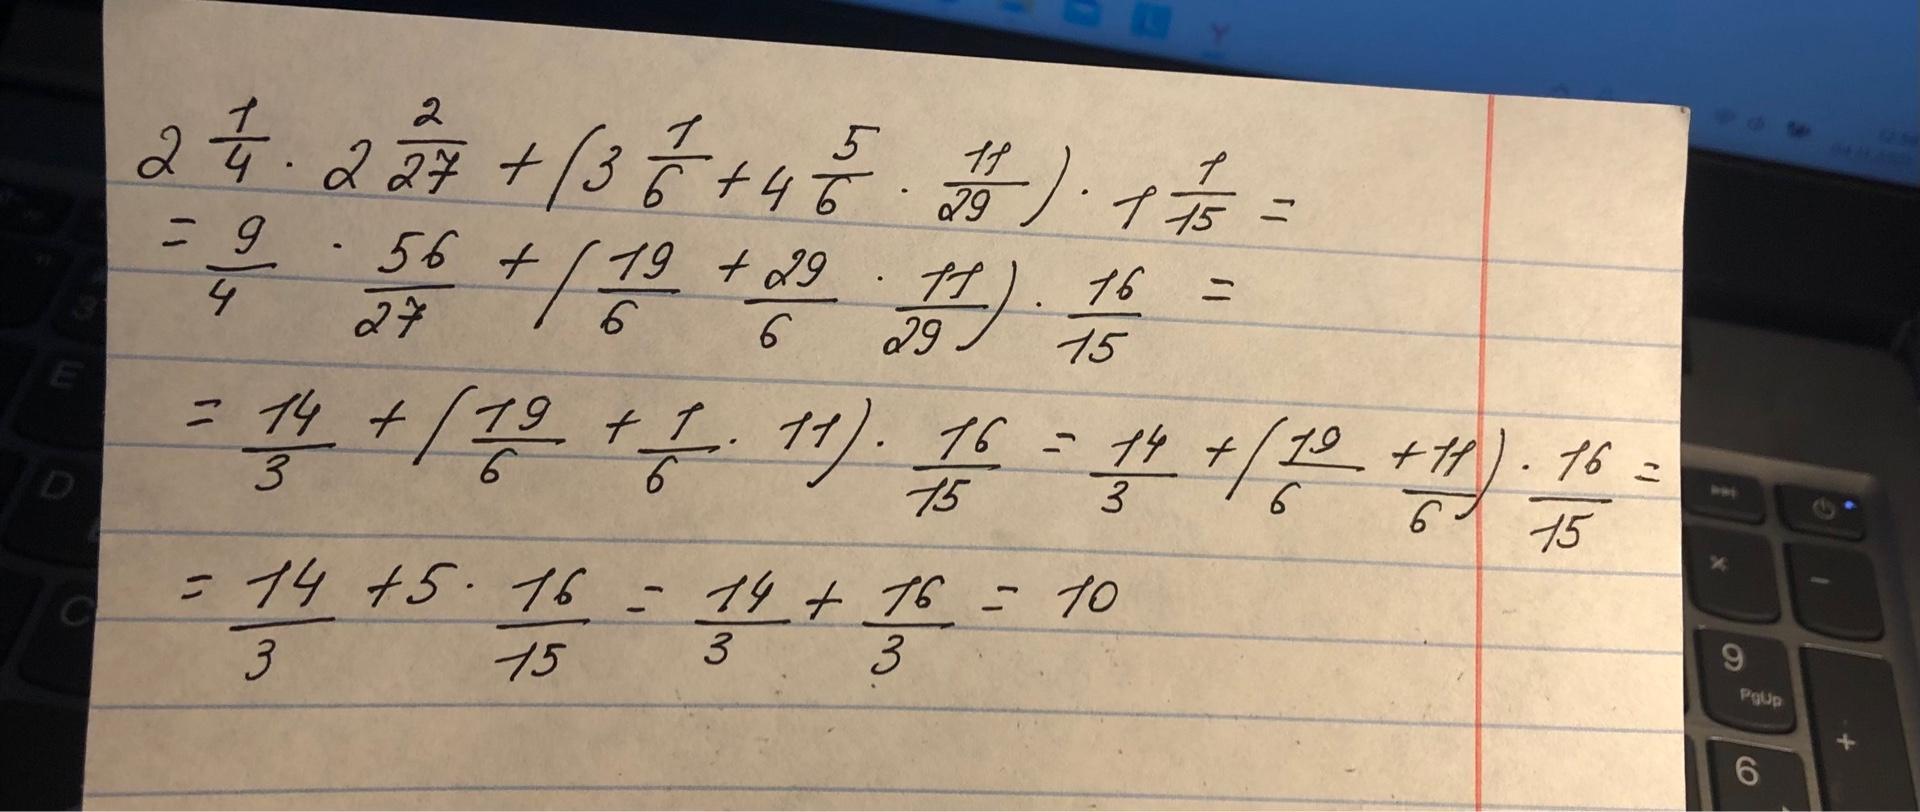 2 1/4 · 2 2/27 + (3 1/6 + 4 5/6 · 11/29) · 1 1/15 =
= 9/4 · 56/27 + (19/6 + 29/6 · 11/29) · 16/15 =
= 14/3 + (19/6 + 1/6 · 11) · 16/15 = 14/3 + (19/6 + 11/6) · 16/15 =
= 14/3 + 5 · 16/15 = 14/3 + 16/3 = 10
E
D
C
9
PgUp
6
×
−
+